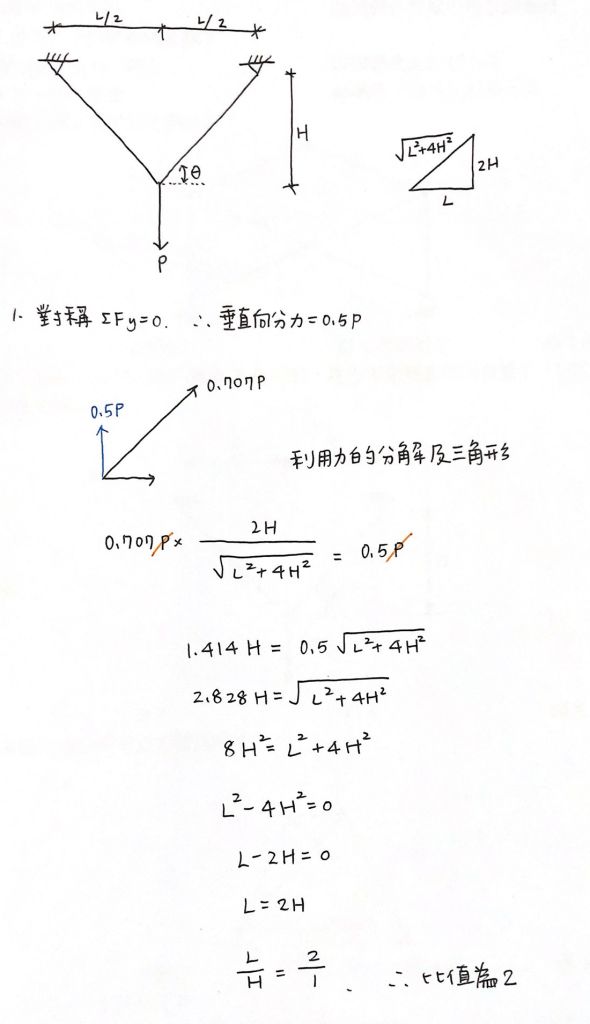 L/2 L/2
H
θ
P
√L²+4H²
2H
L
1. 對稱 ΣFy=0. ∴ 垂直向分力=0.5P
0.707P
0.5P
利用力的分解及三角形
0.707P× 2H/√L²+4H² = 0.5P
1.414H = 0.5√L²+4H²
2.828H=√L²+4H²
8H²=L²+4H²
L²-4H²=0
L-2H=0
L=2H
L/H = 2/1 . ∴ 比值為2